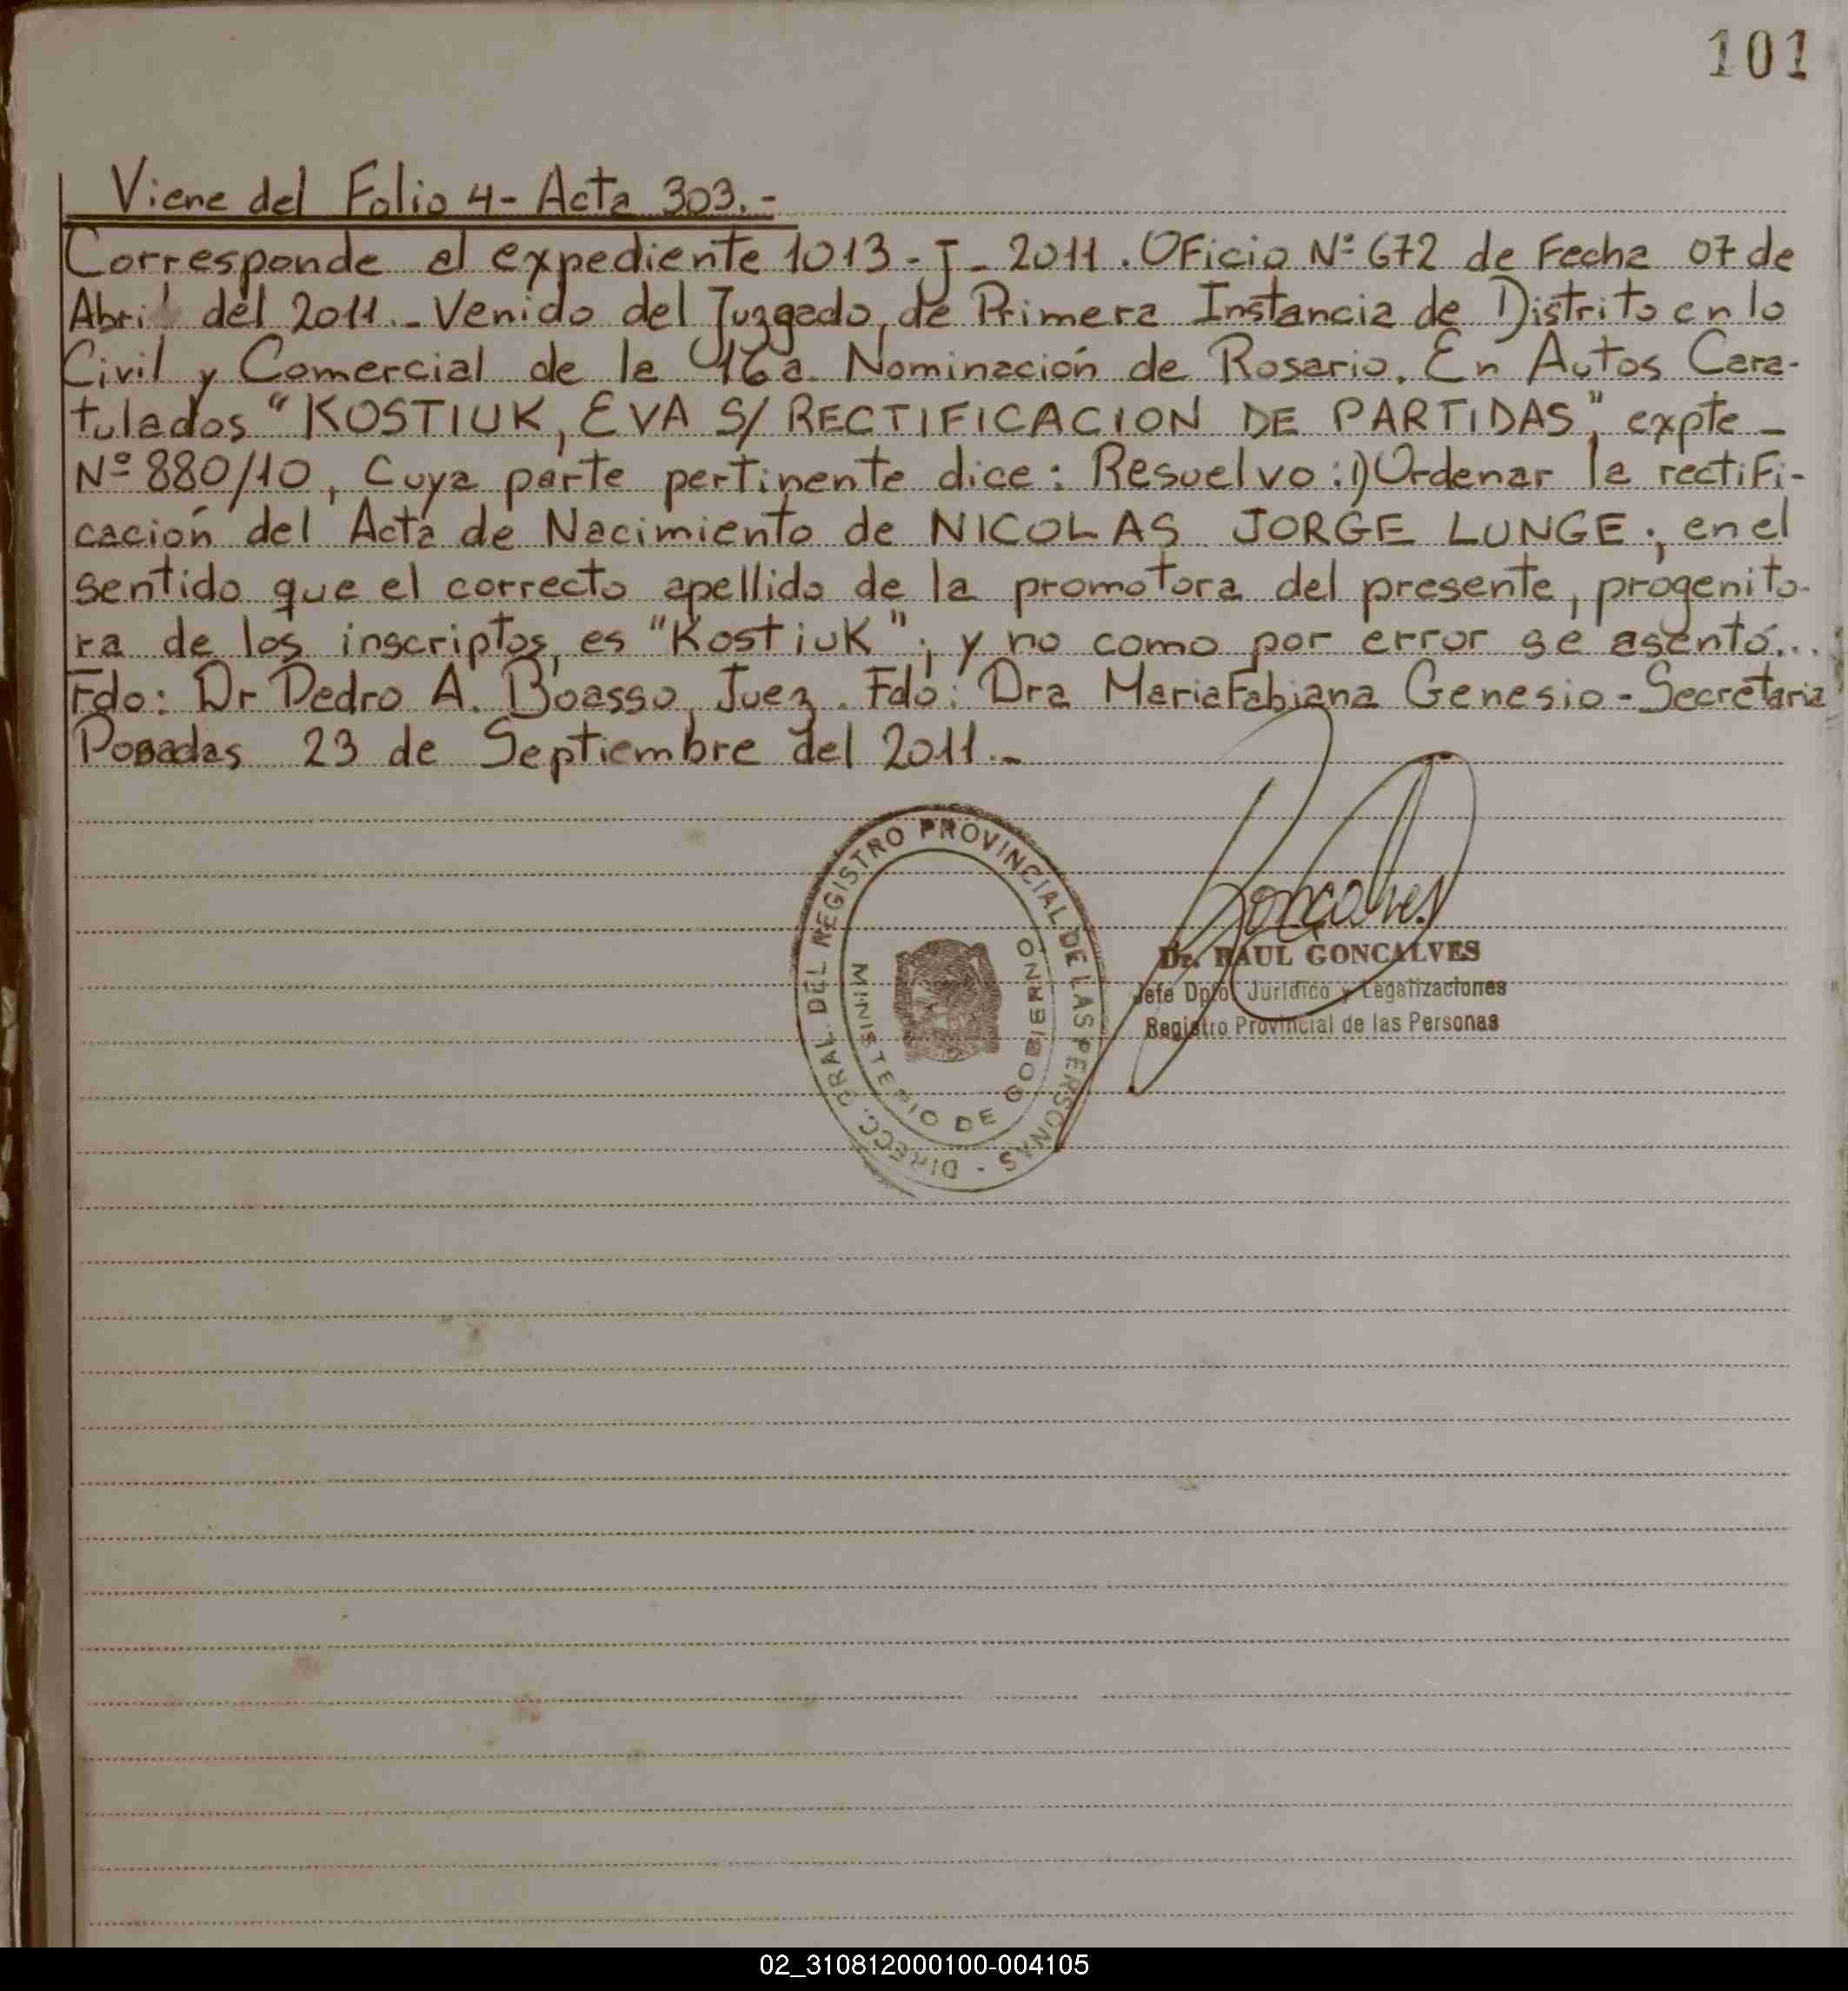 101
Viene del Folio 4 - Acta 303.-
Corresponde al expediente 1013 - J - 2011. Oficio Nº 672 de Fecha 07 de
Abril del 2011.- Venido del Juzgado, de Primera Instancia de Distrito en lo
Civil y Comercial de la 16a Nominación de Rosario. En Autos Cara-
tulados "KOSTIUK, EVA S/ RECTIFICACION DE PARTIDAS", expte -
Nº 880/10, Cuya parte pertinente dice: Resuelvo: 1) Ordenar la rectifi-
cación del Acta de Nacimiento de NICOLAS JORGE LUNGE; en el
sentido que el correcto apellido de la promotora del presente, progenito-
ra de los inscriptos, es "Kostiuk"; y no como por error se asentó...
Fdo: Dr Pedro A. Boasso, Juez. Fdo: Dra Maria Fabiana Genesio - Secretaria
Posadas 23 de Septiembre del 2011.-
DIRECC. GRAL. DEL REGISTRO PROVINCIAL DE LAS PERSONAS -
MINISTERIO DE GOBIERNO
Goncalves
Dr. RAUL GONCALVES
Jefe Dpto. Jurídico y Legalizaciones
Registro Provincial de las Personas
02_310812000100-004105